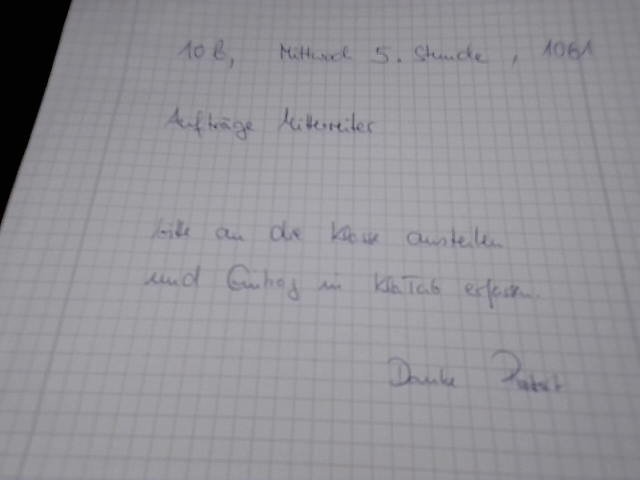 10 B, Mittwoch 5. Stunde, 1061
Aufträge Mitterreiter
bitte an die Klasse austeilen
und Eintrag in KlaTab erfassen.
Danke